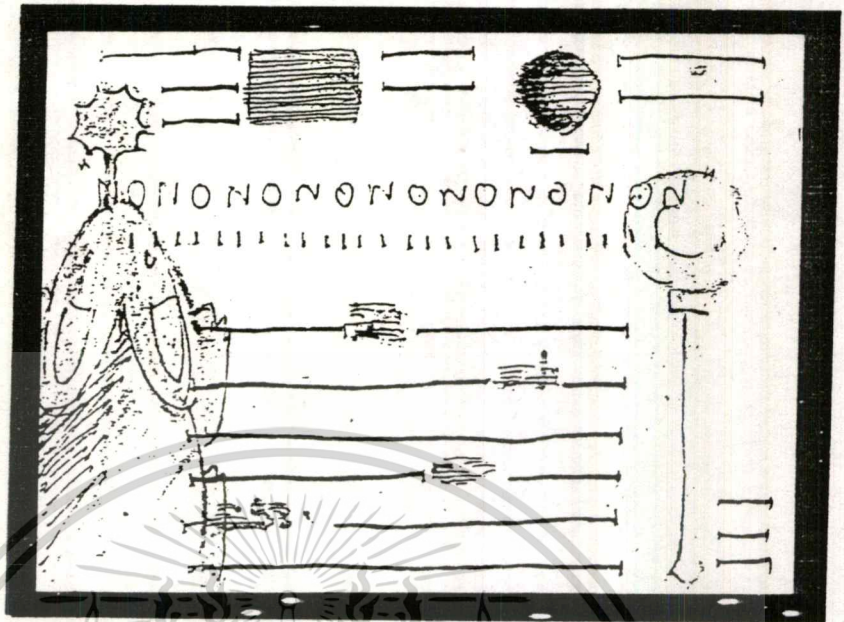 N O N O N O N O N O N O N O N O N